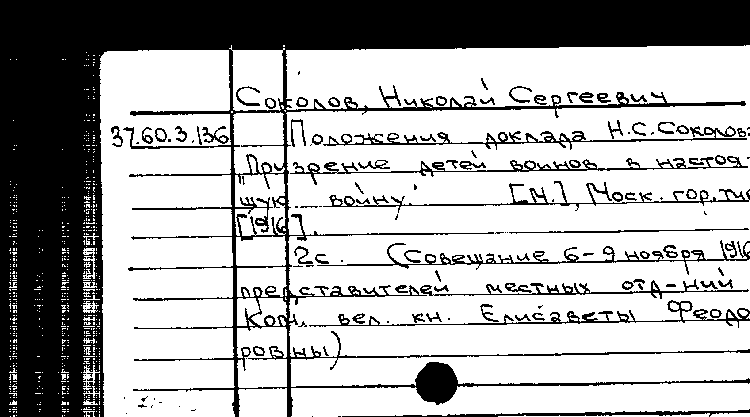 Соколов, Николай Сергеевич
37.60.3.136 Положения доклада Н.С.Соколова
"Призрение детей воинов в настоя-
щую войну." [М.], Моск. гор. тип
[1916].
2с. (Совещание 6-9 ноября 1916
представителей местных отд-ний
Ком. вел. кн. Елисаветы Феодо
ровны)